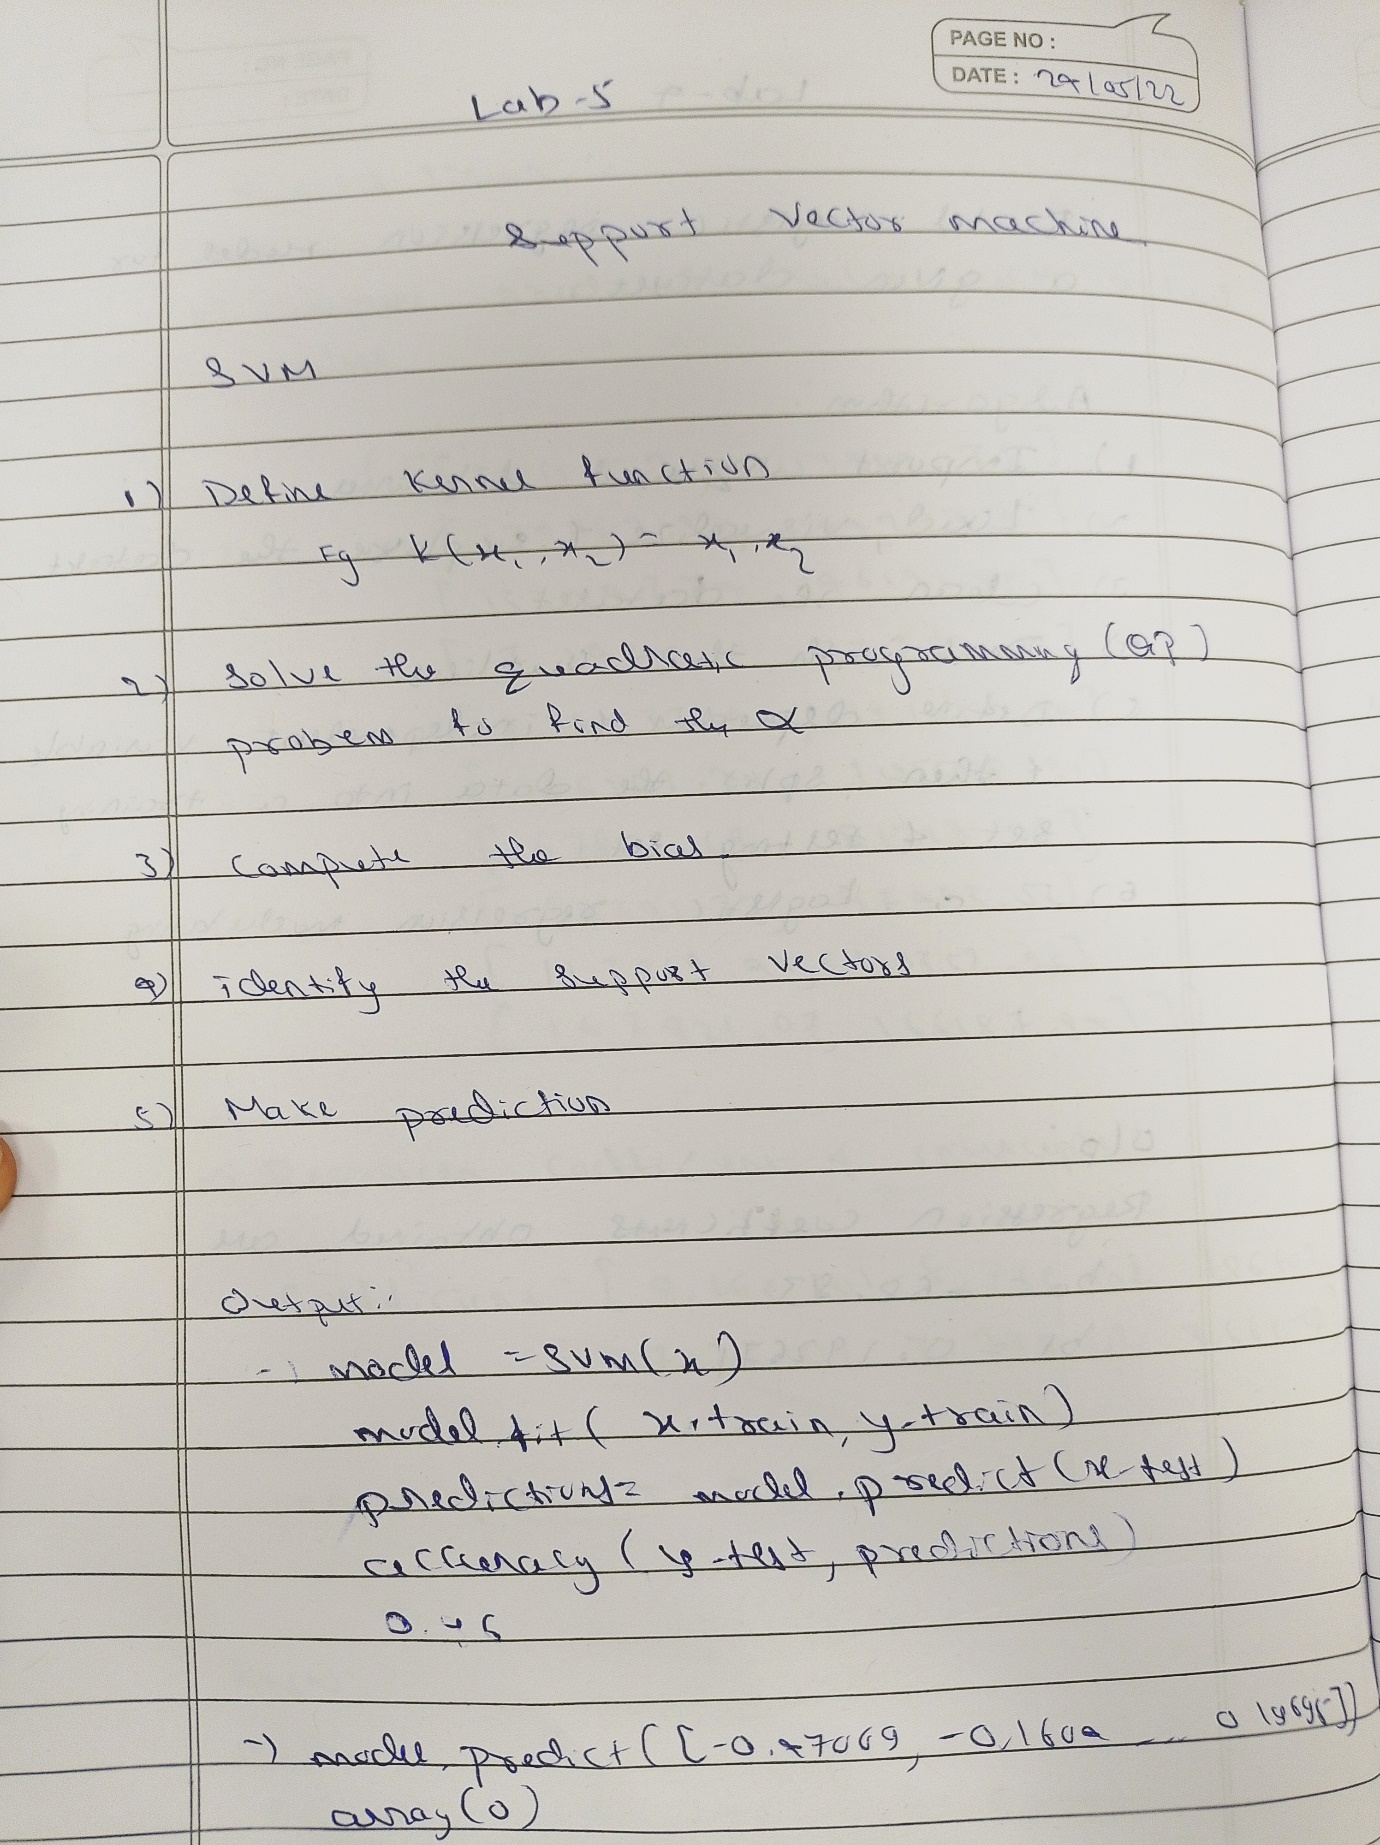 PAGE NO :
DATE : 24/05/22
Lab-5
Support Vector machine
SVM
1) Define Kernel function
Eg K(x1, x2) = x1.x2
2) Solve the quadratic programming (QP)
probem to find the α
3) Compute the bias.
4) identify the support vectors
5) Make prediction
Output:
model = SVM(x)
model.fit( x-train, y-train)
predictions= model.predict(x-test)
accuracy (y-test, predictions)
model.predict([-0.47069, -0.160
array(0)